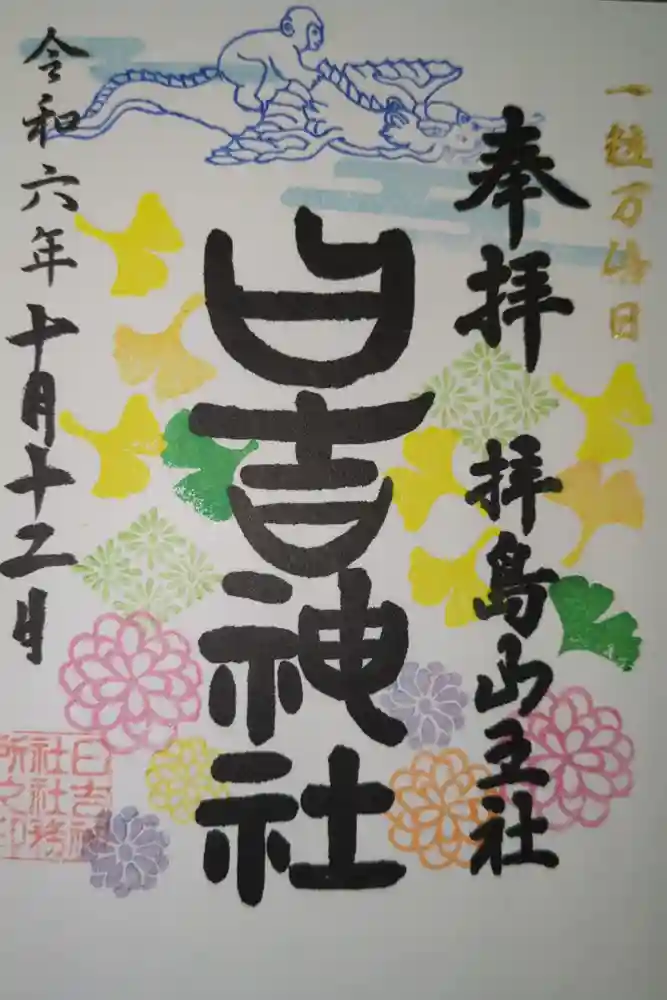 一粒万倍日
奉拝 拝島山王社
日吉神社
令和六年十月十二日
日吉神
社社務
所之印